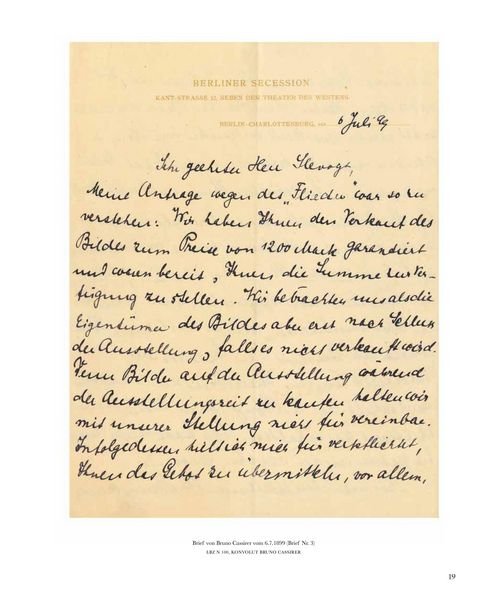 BERLINER SECESSION
KANT-STRASSE 12, NEBEN DEM THEATER DES WESTENS.
BERLIN-CHARLOTTENBURG, den 6 Juli 99
Sehr geehrter Herr Slevogt,
Meine Anfrage wegen des „Flieder“ war so zu
verstehen: Wir haben Ihnen den Verkauf des
Bildes zum Preise von 1200 Mark garantiert
und waren bereit, Ihnen die Summe zur Ver-
fügung zu stellen. Wir betrachten uns als die
Eigentümer des Bildes aber erst nach Schluss
der Ausstellung, falls es nicht verkauft wird.
Denn Bilder auf der Ausstellung während
der Ausstellungszeit zu kaufen halten wir
mit unserer Stellung nicht für vereinbar.
Infolgedessen hielt ich mich für verpflichtet,
Ihnen das Gebot zu übermitteln, vor allem,
Brief von Bruno Cassirer vom 6.7.1899 (Brief Nr. 3)
LBZ N 100, KONVOLUT BRUNO CASSIRER
19